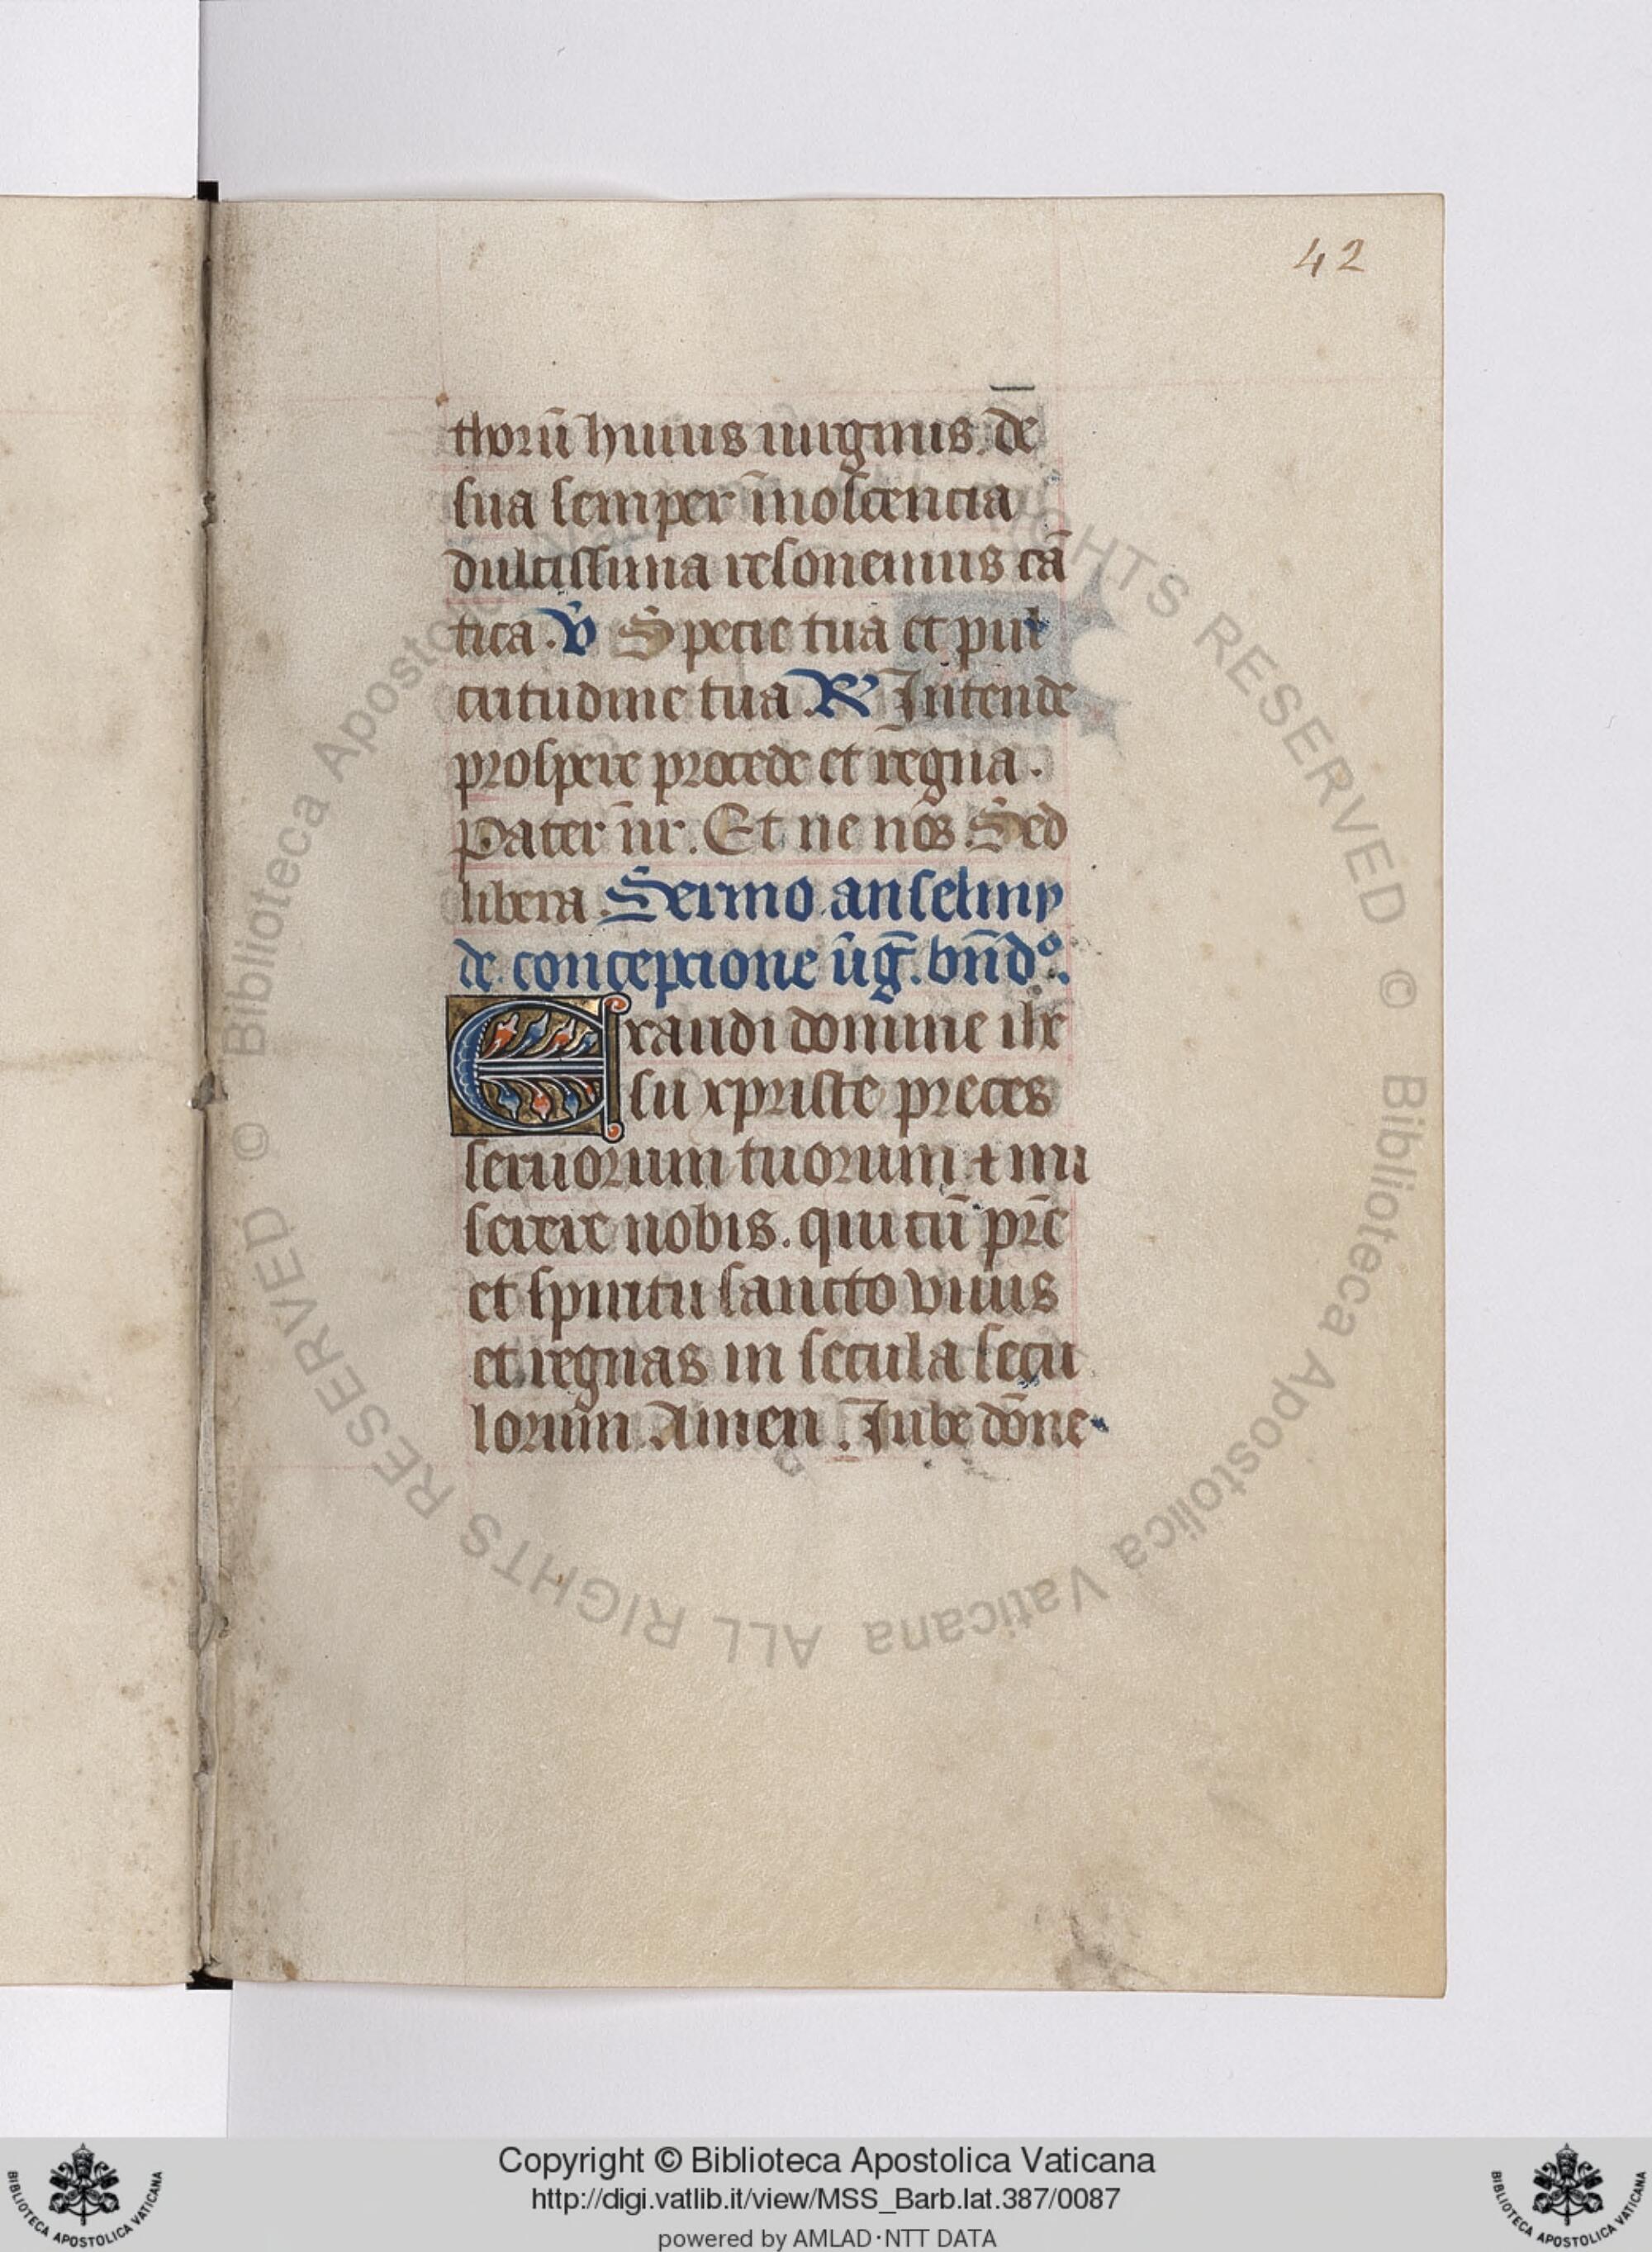 42
thorū huius uirginis. de
sua semper īnoscencia
dulcissima resonemus cā
tica. ℣ Specie tua et pul
critudine tua. ℟ Intende
prospere procede et regna.
Pater nr̄. Et ne nōs. Sed
libera. Sermo anselmy
de conceptione ūḡ. bn̄dº.
Exaudi domine ihe
su xpriste preces
seruorum tuorum. ⁊ mi
serere nobis. qui cū pr̄e
et spiritu sancto viuis
et regnas in secula secu
lorum. Amen. Iube dōne
Copyright © Biblioteca Apostolica Vaticana
http://digi.vatlib.it/view/MSS_Barb.lat.387/0087
powered by AMLAD·NTT DATA
BIBLIOTECA APOSTOLICA VATICANA
BIBLIOTECA APOSTOLICA VATICANA
© Biblioteca Apostolica Vaticana ALL RIGHTS RESERVED
© Biblioteca Apostolica Vaticana ALL RIGHTS RESERVED